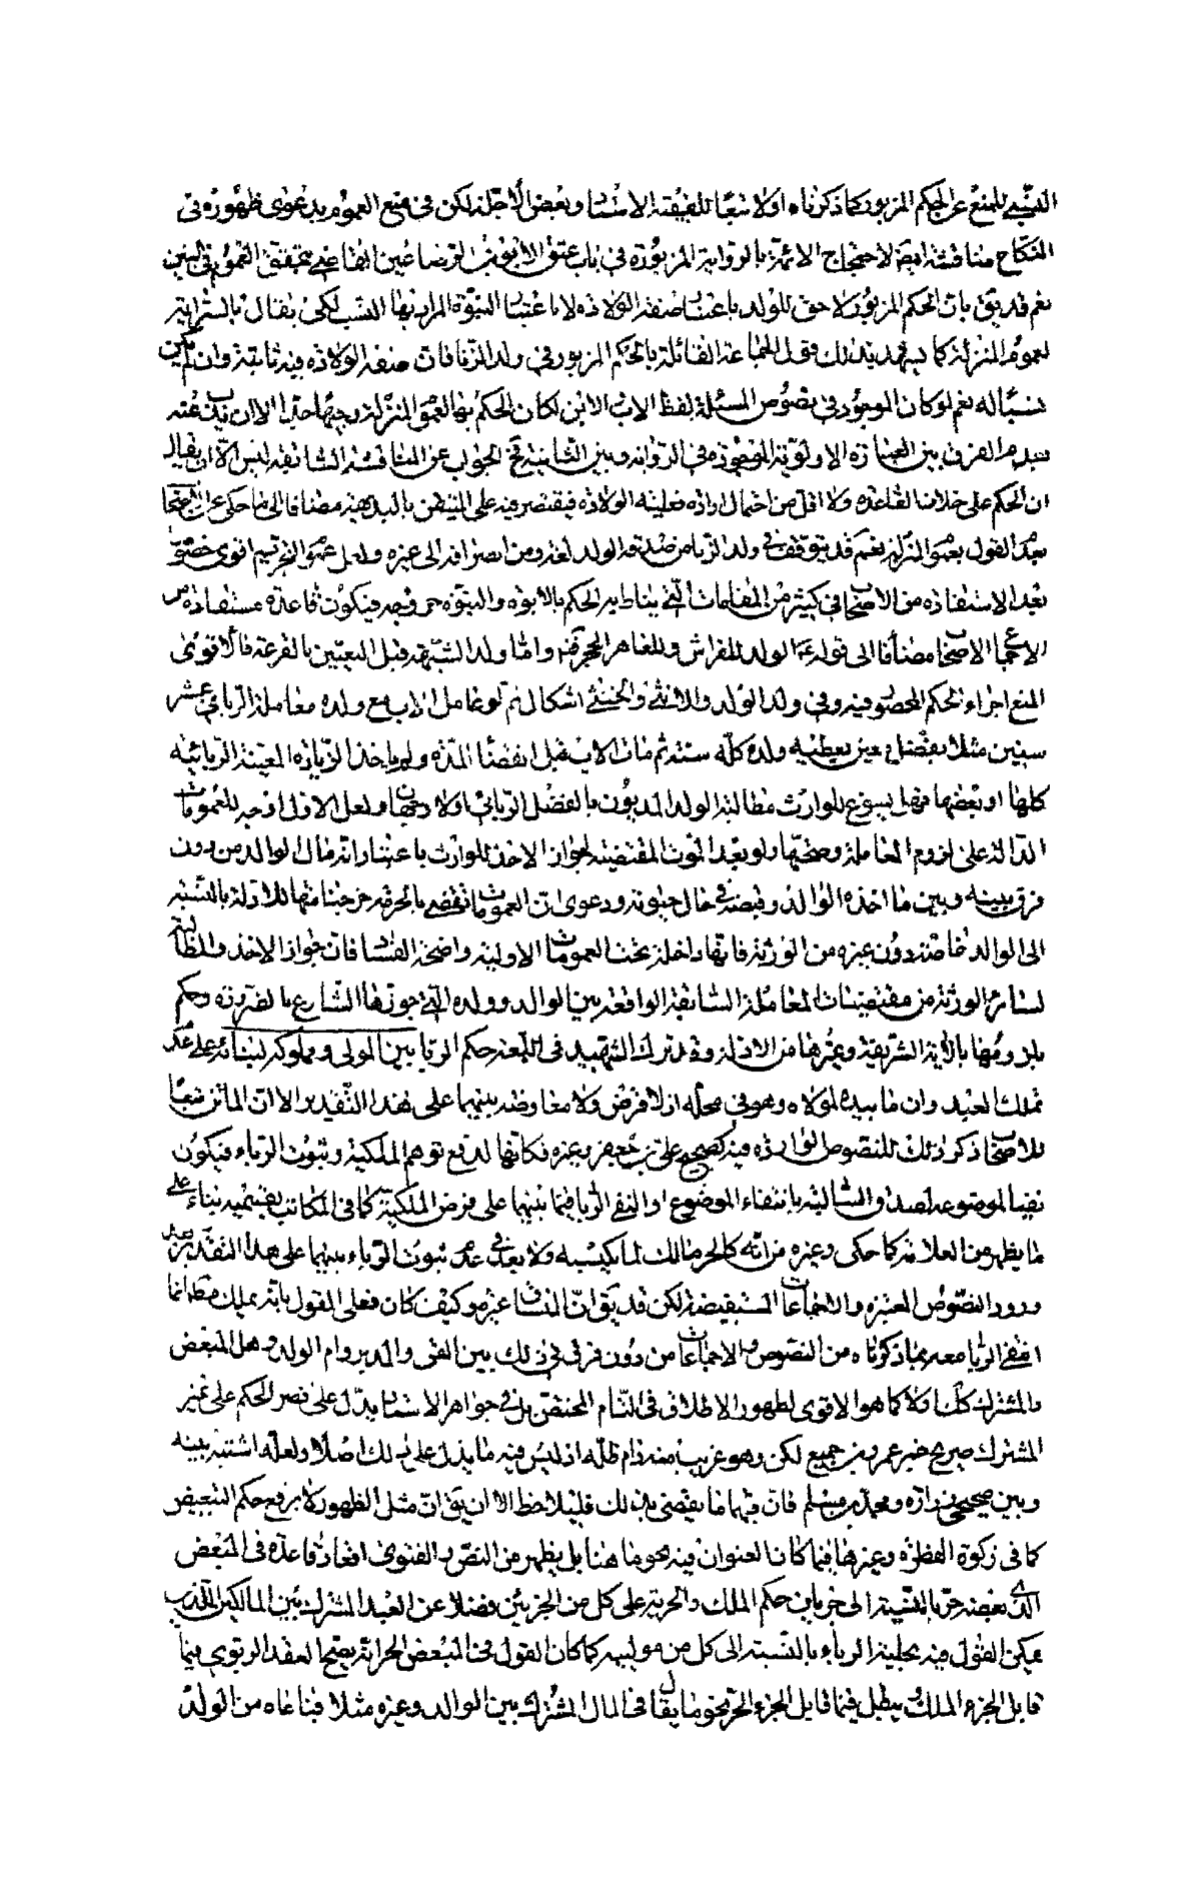 للمنع عن الحكم المزبور كما ذكرناه اولا تبعا للفقيه الاستاد وبعض الاجلة لكن في منع العموم بدعوى ظهوره في
النكاح مناقشة لاحتجاج الائمة بالرواية المزبورة في باب عتق الابوين الرضاعيين
نعم قد يق بان الحكم المزبور لاحق للولد باعتبار صفة الولادة لا باعتبار البنوة المراد بها النسب لكي يقال بالشرائية
لعموم المنزلة كما يشهد بذلك قول الجماعة القائلة بالحكم المزبور في ولد الزنا فان صفة الولادة فيه ثابتة وان لم يكن
نسبا له نعم لو كان الموجود في نصوص المسئلة لفظ الاب والابن لكان الحكم بها لعموم المنزلة وجيها جدا الا ان
الفرق بين العبارة الاولوية في الرواية وبين الثانية الجواب عن المناقشة السابقة ليس الا ان يقال
ان الحكم على خلاف القاعدة ولا اقل من احتمال ارادة صلبية الولادة فيقتصر فيه على المتيقن بالبديهة مضافا الى ما حكى عن
بعد القول بعموم المنزلة نعم قد يتوقف في ولد الزنا من صدق الولد لغة ومن انصرافه الى غيره ولعل عموم التحريم اقوى
بعد الاستفادة من الاصحاب في كثير من المقامات التي يناط بها الحكم بالابوة والبنوة فيكون قاعدة مستفادة من
الاصحاب مضافا الى قوله الولد للفراش وللعاهر الحجر واما ولد الشبهة قبل التعيين بالقرعة فالاقوى
المنع اجراء لحكم المحصور فيه وفي ولد الولد والانثى والخنثى اشكال ثم لو عامل الاب مع ولده معاملة الربا في عشر
سنين مثلا بفضل معين يعطيه ولده كله سنة ثم مات الاب قبل انقضاء المدة ولم ياخذ الزيادة المعينة الربائية
كلها او بعضها فهل يسوغ للوارث مطالبة الولد المديون بالفضل الربائي اولا وجهان ولعل الاول اوجه للعمومات
الدالة على لزوم المعاملة وصحتها ولو بعد الموت المقتضية لجواز الاخذ للوارث باعتبار انه مال الوالد من دون
فرق بينه وبين ما اخذه الوالد وقبضه في حال حيوته ودعوى ان العمومات تقضي بالحرمة خرجنا منها للادلة بالنسبة
الى الوالد خاصة دون غيره من الورثة فانها داخلة تحت العمومات الاولية واضحة الفساد فان جواز الاخذ والمطالبة
لسائر الورثة من مقتضيات المعاملة السابقة الواقعة بين الوالد وولده التي جوزها الشارع بالضرورة وحكم
بلزومها بالاية الشريفة وغيرها من الادلة وقد ترك الشهيد في اللمعة حكم الربا بين المولى ومملوكه لبنائه على عدم
تملك العبد وان ما بيده لمولاه وهو في محله اذ لا فرض ولا معاوضة بينهما على هذا التقدير الا ان الماتن تبعا
للاصحاب ذكر ذلك للنصوص الواردة فيه كصحيح على بن جعفر وغيره فكانها لدفع توهم الملكية وثبوت الرباء فيكون
نفيا لموضوعه والسالبة بانتفاء الموضوع او لنفي الربا فيما بينهما على فرض الملكية كما في المكاتب بقسميه بناء على
ما يظهر من العلامة كما حكى وغيره من انه كالحر مالك لما يكسبه ولا بعد في عدم ثبوت الرباء بينهما على هذا التقدير بعد
ورود النصوص المعتبرة والاجماعات المستفيضة لكن قد يق ان المكاتب غيره وكيف كان فعلى القول بانه يملك مطلقا
انتفى الربا معه بما ذكرناه من النصوص والاجماعات من دون فرق في ذلك بين القن والمدبر وام الولد وهل المبعض
والمشترك كذلك اولا كما هو الاقوى لظهور الاطلاق في التام المختص بل في جواهر الاستاد يدل على قصر الحكم على غير
المشترك صريح خبر عمرو بن جميع لكن وهو غريب منه دام ظله اذ ليس فيه ما يدل على ذلك اصلا ولعله اشتبه بينه
وبين صحيحي زرارة ومحمد بن مسلم فان فيهما ما يقضي بذلك فليلاحظ الا ان يق ان مثل الظهور لا يرفع حكم التبعيض
كما في زكوة الفطرة وغيرها فيما كان العنوان فيه نحو ما هنا بل يظهر من النص والفتوى اتحاد قاعدة في المبعض
الذي بعضه حر بالنسبة الى جريان حكم الملك والحرية على كل من الجزئين فضلا عن العبد المشترك بين المالكين الذي
يمكن القول فيه بحلية الرباء بالنسبة الى كل من موليه كما كان القول في المبعض الحر انه يصح العقد الربوي فيما
قابل الجزء الملك ويبطل فيما قابل الجزء الحر نحو ما يقال في المال المشترك بين الوالد وغيره مثلا فباعاه من الولد